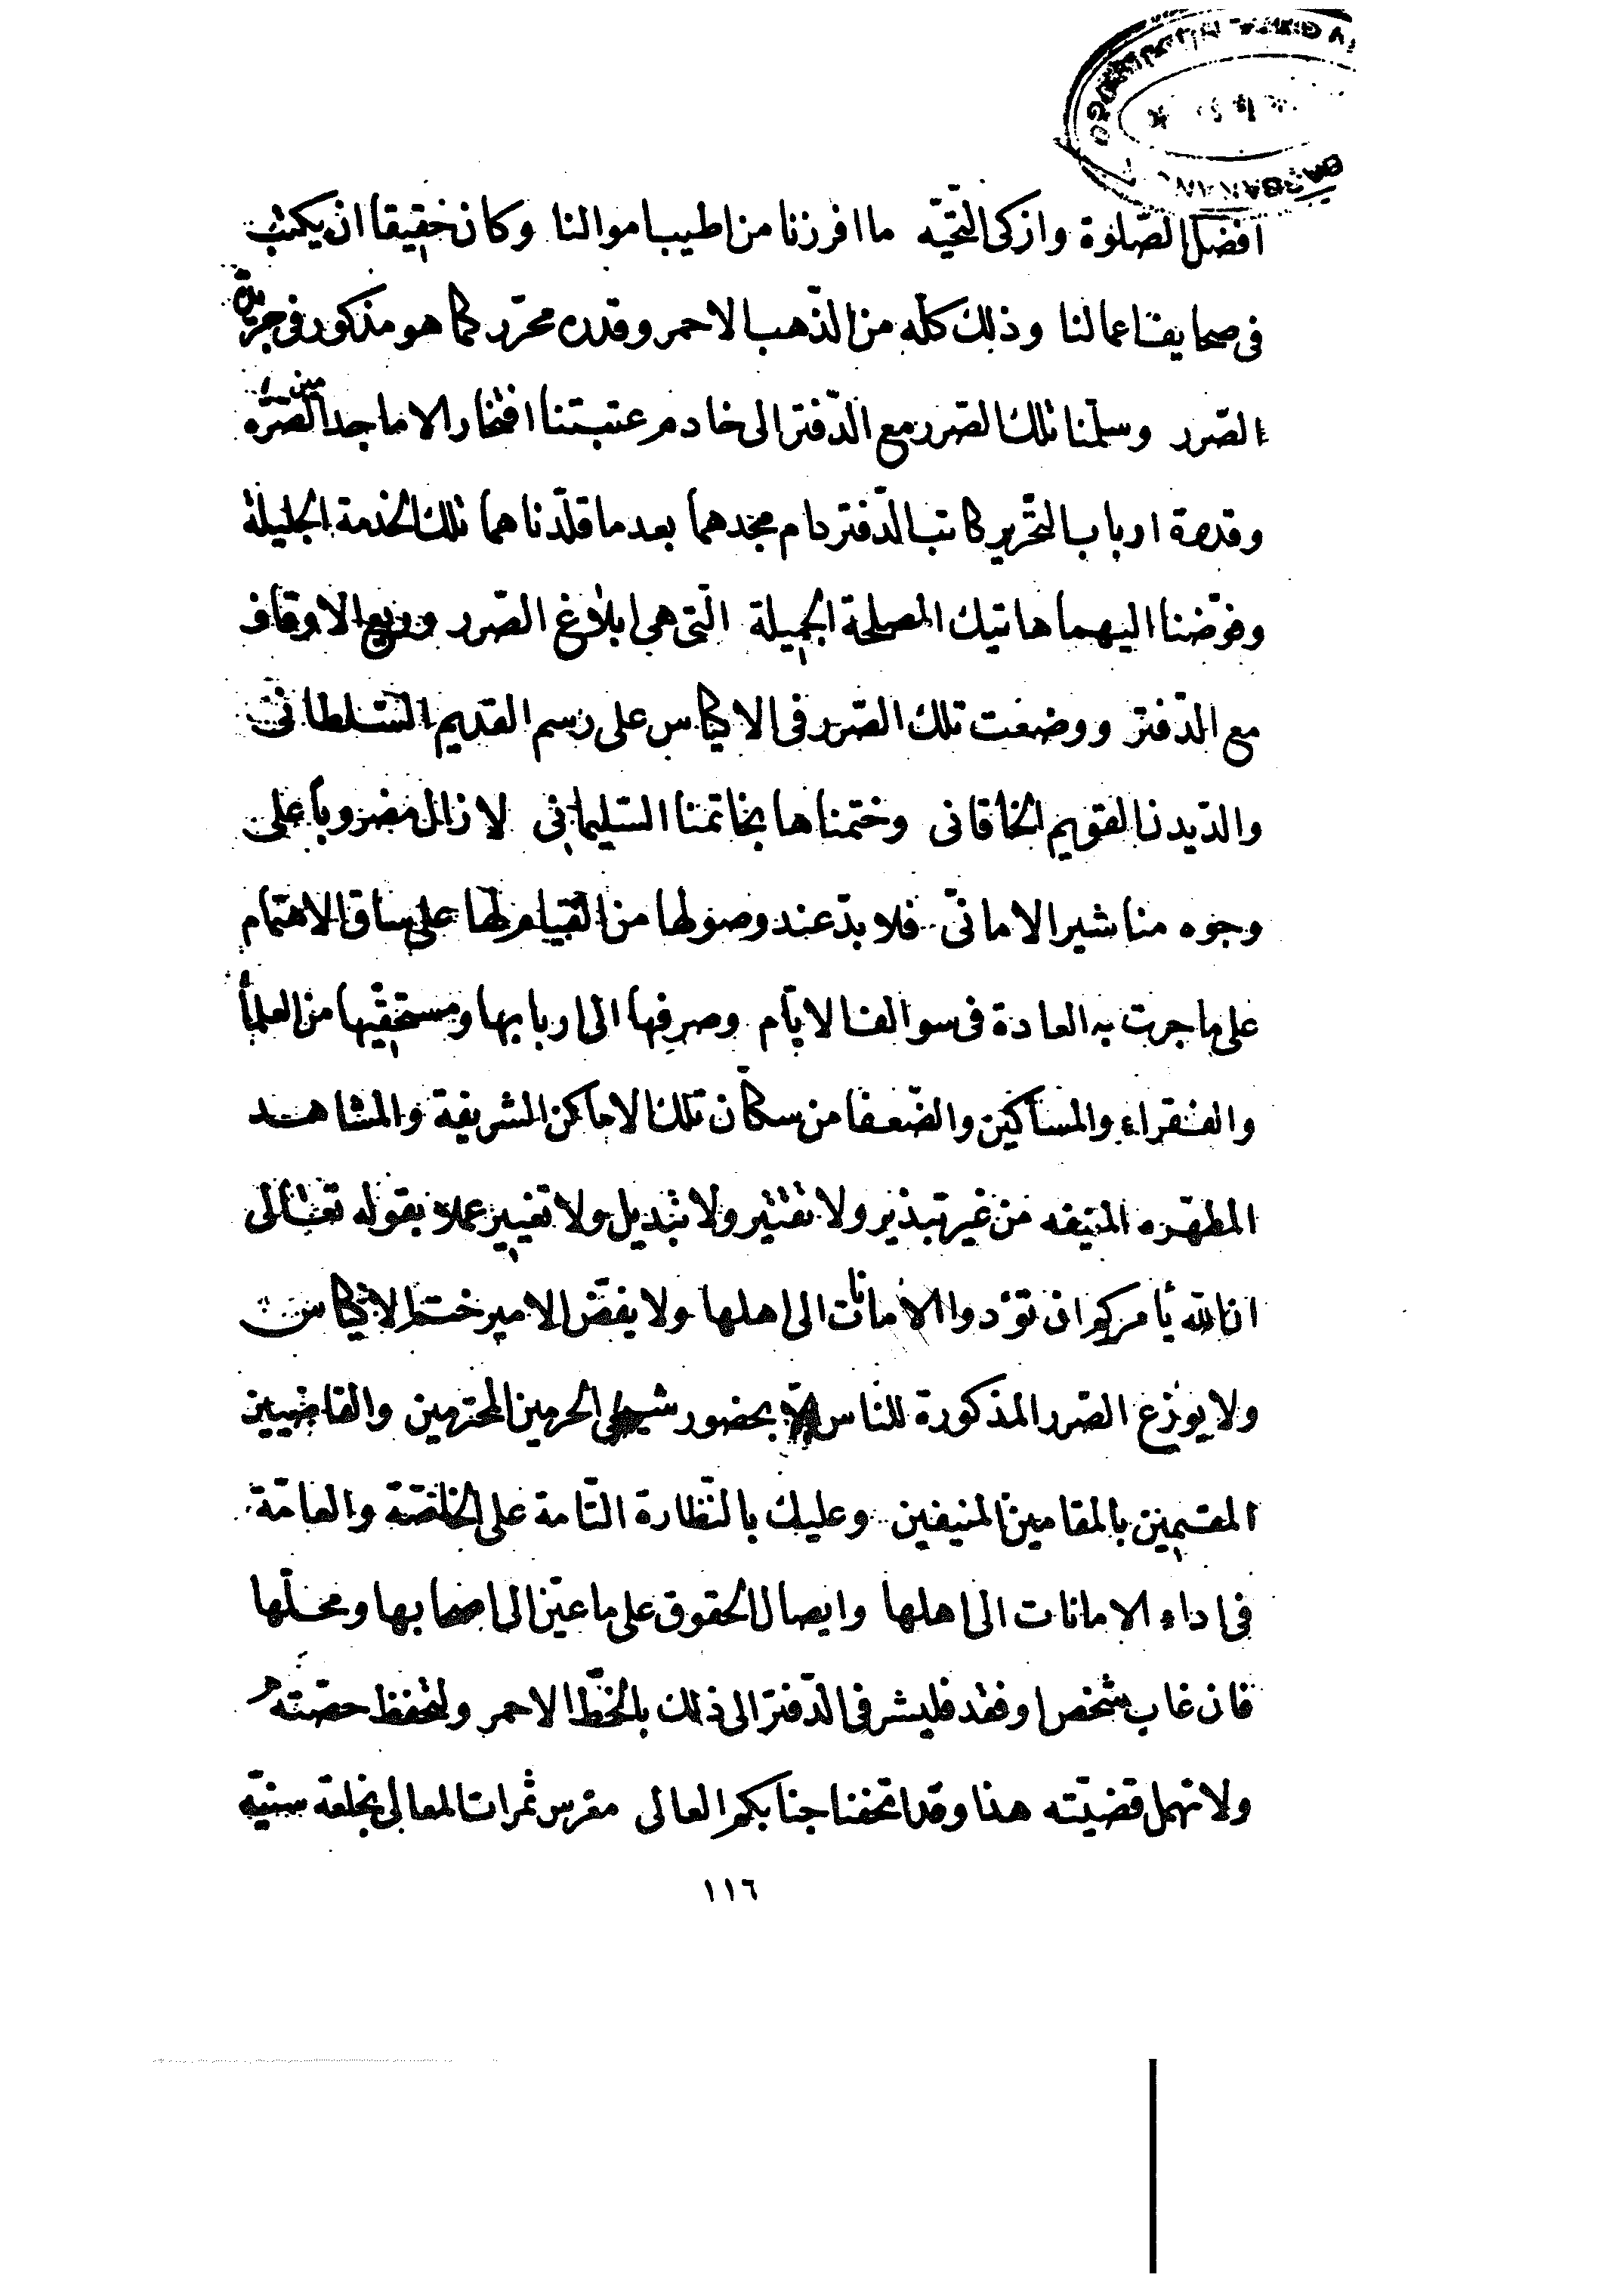 افضل الصّلوة وازكى التحيّه ما افرزنا من اطيب اموالنا وكان حقيقا ان يكتب
فى صحايف اعمالنا وذلك كلّه من الذّهب الاحمر وقدره محرّر كما هو مذكور فى جريدة
الصّرر وسلّمنا تلك الصّرر مع الدّفتر الى خادم عتبتنا افتخار الاماجد امين الصّرّه
وقدوة ارباب التحرير كاتب الدّفتر دام مجدهما بعد ما قلّدناهما تلك الخدمة الجليلة
وفوّضنا اليهما هاتيك المصلحة الجميلة الّتى هى ابلاغ الصّرر وريع الاوقاف
مع الدّفتر ووضعت تلك الصّرر فى الاكياس على رسم القديم السّلطانى
والدّيدن القويم الخاقانى وختمناها بخاتمنا السّليمانى لا زال مضروباً على
وجوه مناشير الامانّى فلا بدّ عند وصولها من القيام لها على ساق الاهتمام
على ما جرت به العادة فى سوالف الايّام وصرفها الى اربابها ومستحقّيها من العلمأ
والفقراء والمساكين والضّعفا من سكّان تلك الاماكن الشريفة والمشاهد
المطهّره المنيفه من غير تبذير ولا تقتير ولا تبديل ولا تغيير عملا بقوله تعالى
ان الله يأمركم ان تؤدوا الامانات الى اهلها ولا يفضّ الامير ختم الاكياس
ولا يوزع الصّرر المذكورة للناس الّا بحضور شيخى الحرمين المحترمين والقاضيين
المقيمين بالمقامين المنيفين وعليك بالنّظارة التّامة على الخاصّة والعامّة
فى اداء الامانات الى اهلها وايصال الحقوق على ما عيّن الى اصحابها ومحلّها
فان غاب شخص او فقد فليشر فى الدّفتر الى ذلك بالخطّ الاحمر ولتحفظ حصّته
ولا تهمل قضيّته هذا وقد اتحفنا جنابكم العالى مغرس ثمرات المعالى بخلعة سنيّه
١١٦